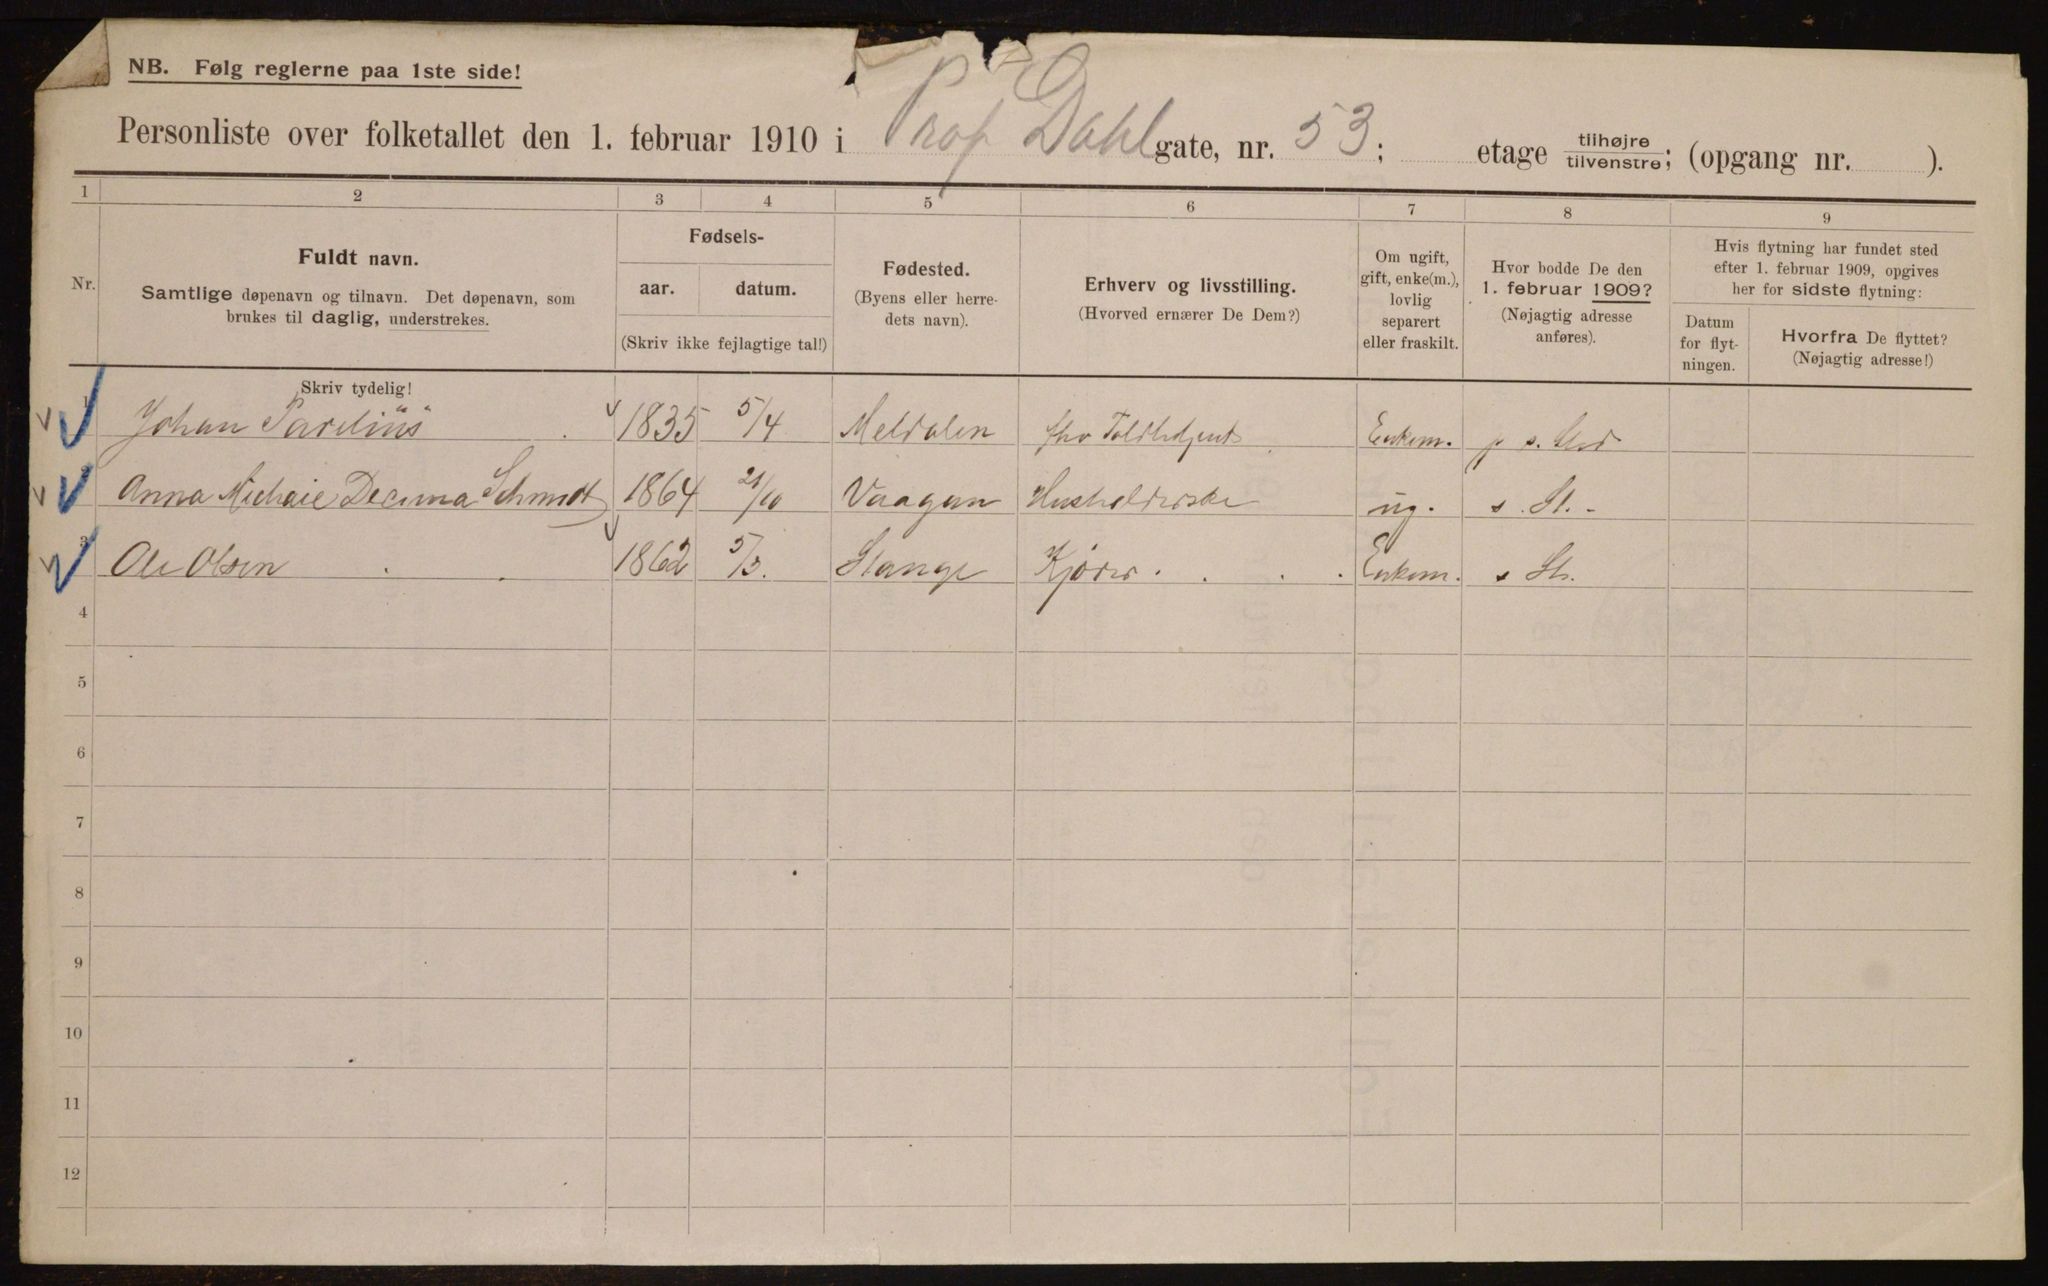 NB. Følg reglerne paa 1ste side!
Personliste over folketallet den 1. februar 1910 i Prof Dahl gate, nr. 53; etage tilhøjre tilvenstre; (opgang nr. ).
1 2 3 4 5 6 7 8 9
Nr.
Fuldt navn.
Samtlige døpenavn og tilnavn. Det døpenavn, som
brukes til daglig, understrekes.
Fødsels-
aar. datum.
(Skriv ikke fejlagtige tal!)
Fødested.
(Byens eller herre-
dets navn).
Erhverv og livsstilling.
(Hvorved ernærer De Dem?)
Om ugift,
gift, enke(m.),
lovlig
separert
eller fraskilt.
Hvor bodde De den
1. februar 1909?
(Nøjagtig adresse
anføres).
Hvis flytning har fundet sted
efter 1. februar 1909, opgives
her for sidste flytning:
Datum
for flyt-
ningen.
Hvorfra De flyttet?
(Nøjagtig adresse!)
Skriv tydelig!
1 Johan Parelius 1835 5/4 Meldalen Enkem. p s. Sted
2 Anna Decima Schmidt 1864 21/10 Vaagan Husholderske ug. s. St.
3 Ole Olsen 1862 5/3. Stange Kjører Enkem. s St.
4
5
6
7
8
9
10
11
12